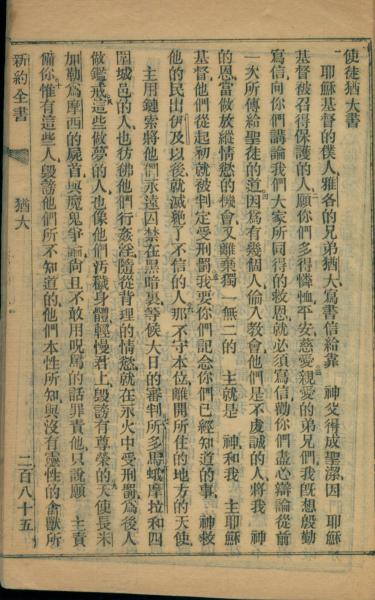 使徒猶大書
耶穌基督的僕人雅各的兄弟猶大寫書信給靠　神父得成聖潔因　耶穌
基督被召得保護的人願你們多得憐恤平安慈愛親愛的弟兄們我既想殷勤
寫信向你們講論我們大家所同得的救恩就必須寫信勸你們盡心辯論從前
一次所傳給聖徒的道因爲有幾個人偷入教會他們是不虔誠的人將我　神
的恩當做放縱情慾的機會又離棄獨一無二的　主就是　神和我　主耶穌
基督他們從起初就被判定受刑罰我要你們記念你們已經知道的事　神救
他的民出伊及以後就滅絕了不信的人那不守本位離開所住的地方的天使
主用鏈索將他們永遠囚禁在黑暗裏等候大日的審判所多馬蛾摩拉和四
圍城邑的人也彷彿他們行姦淫隨從背理的情慾就在永火中受刑罰爲後人
做鑑戒這些做夢的人也像他們汚穢身體輕慢君上毀謗有尊榮的天使長米
加勒爲摩西的屍首與魔鬼爭論尚且不敢用咒罵的話罪責他只說願　主責
備你惟有這些人毀謗他們所不知道的他們本性所知與沒有靈性的禽獸所
新約全書
猶大
二百八十五